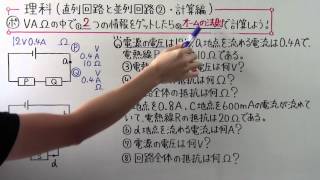 理科(直列回路と並列回路②・計算編)
VAΩの中で①2つの情報をゲットしたら②オームの法則で計算しよう。
12V0.4A
P V
0.4A
10Ω
Q V
A
Ω
P
Q
電源の電圧は12
地点を流れる電流は0.4Aで、
電熱線
抵抗は10Ωである。
③
は何V?
④
は何Ω?
⑤
抵抗は何Ω?
地点を0.8A、C地点を600mAの電流が流れて
いて、電熱線Rの抵抗は20Ωである。
⑥d地点を流れる電流は何A?
⑦電源の電圧は何V?
⑧回路全体の抵抗は何Ω?